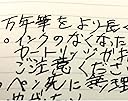 万年筆をより長く
。インクのなくなった
カートリッジが
ご注意くださ
ペン先に無理